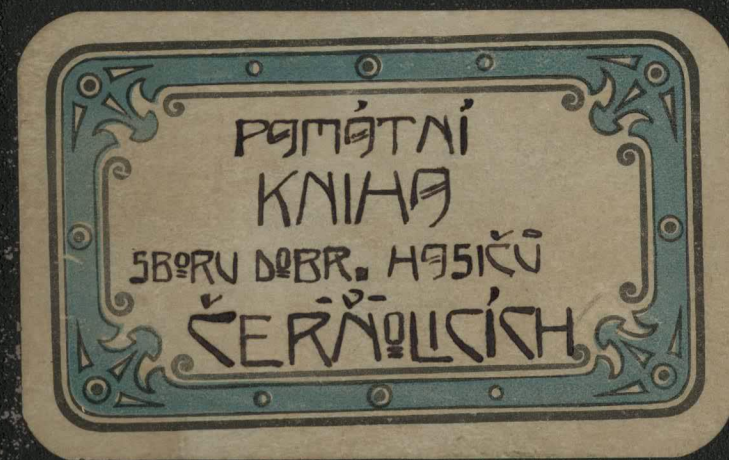 PAMÁTNÍ
KNIHA
SBORU DOBR. HASIČŮ
- V -
ČERŇOLICÍCH